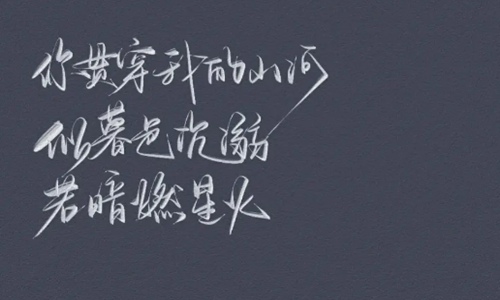 你贯穿我的山河
似暮色沉溺
若暗燃星火